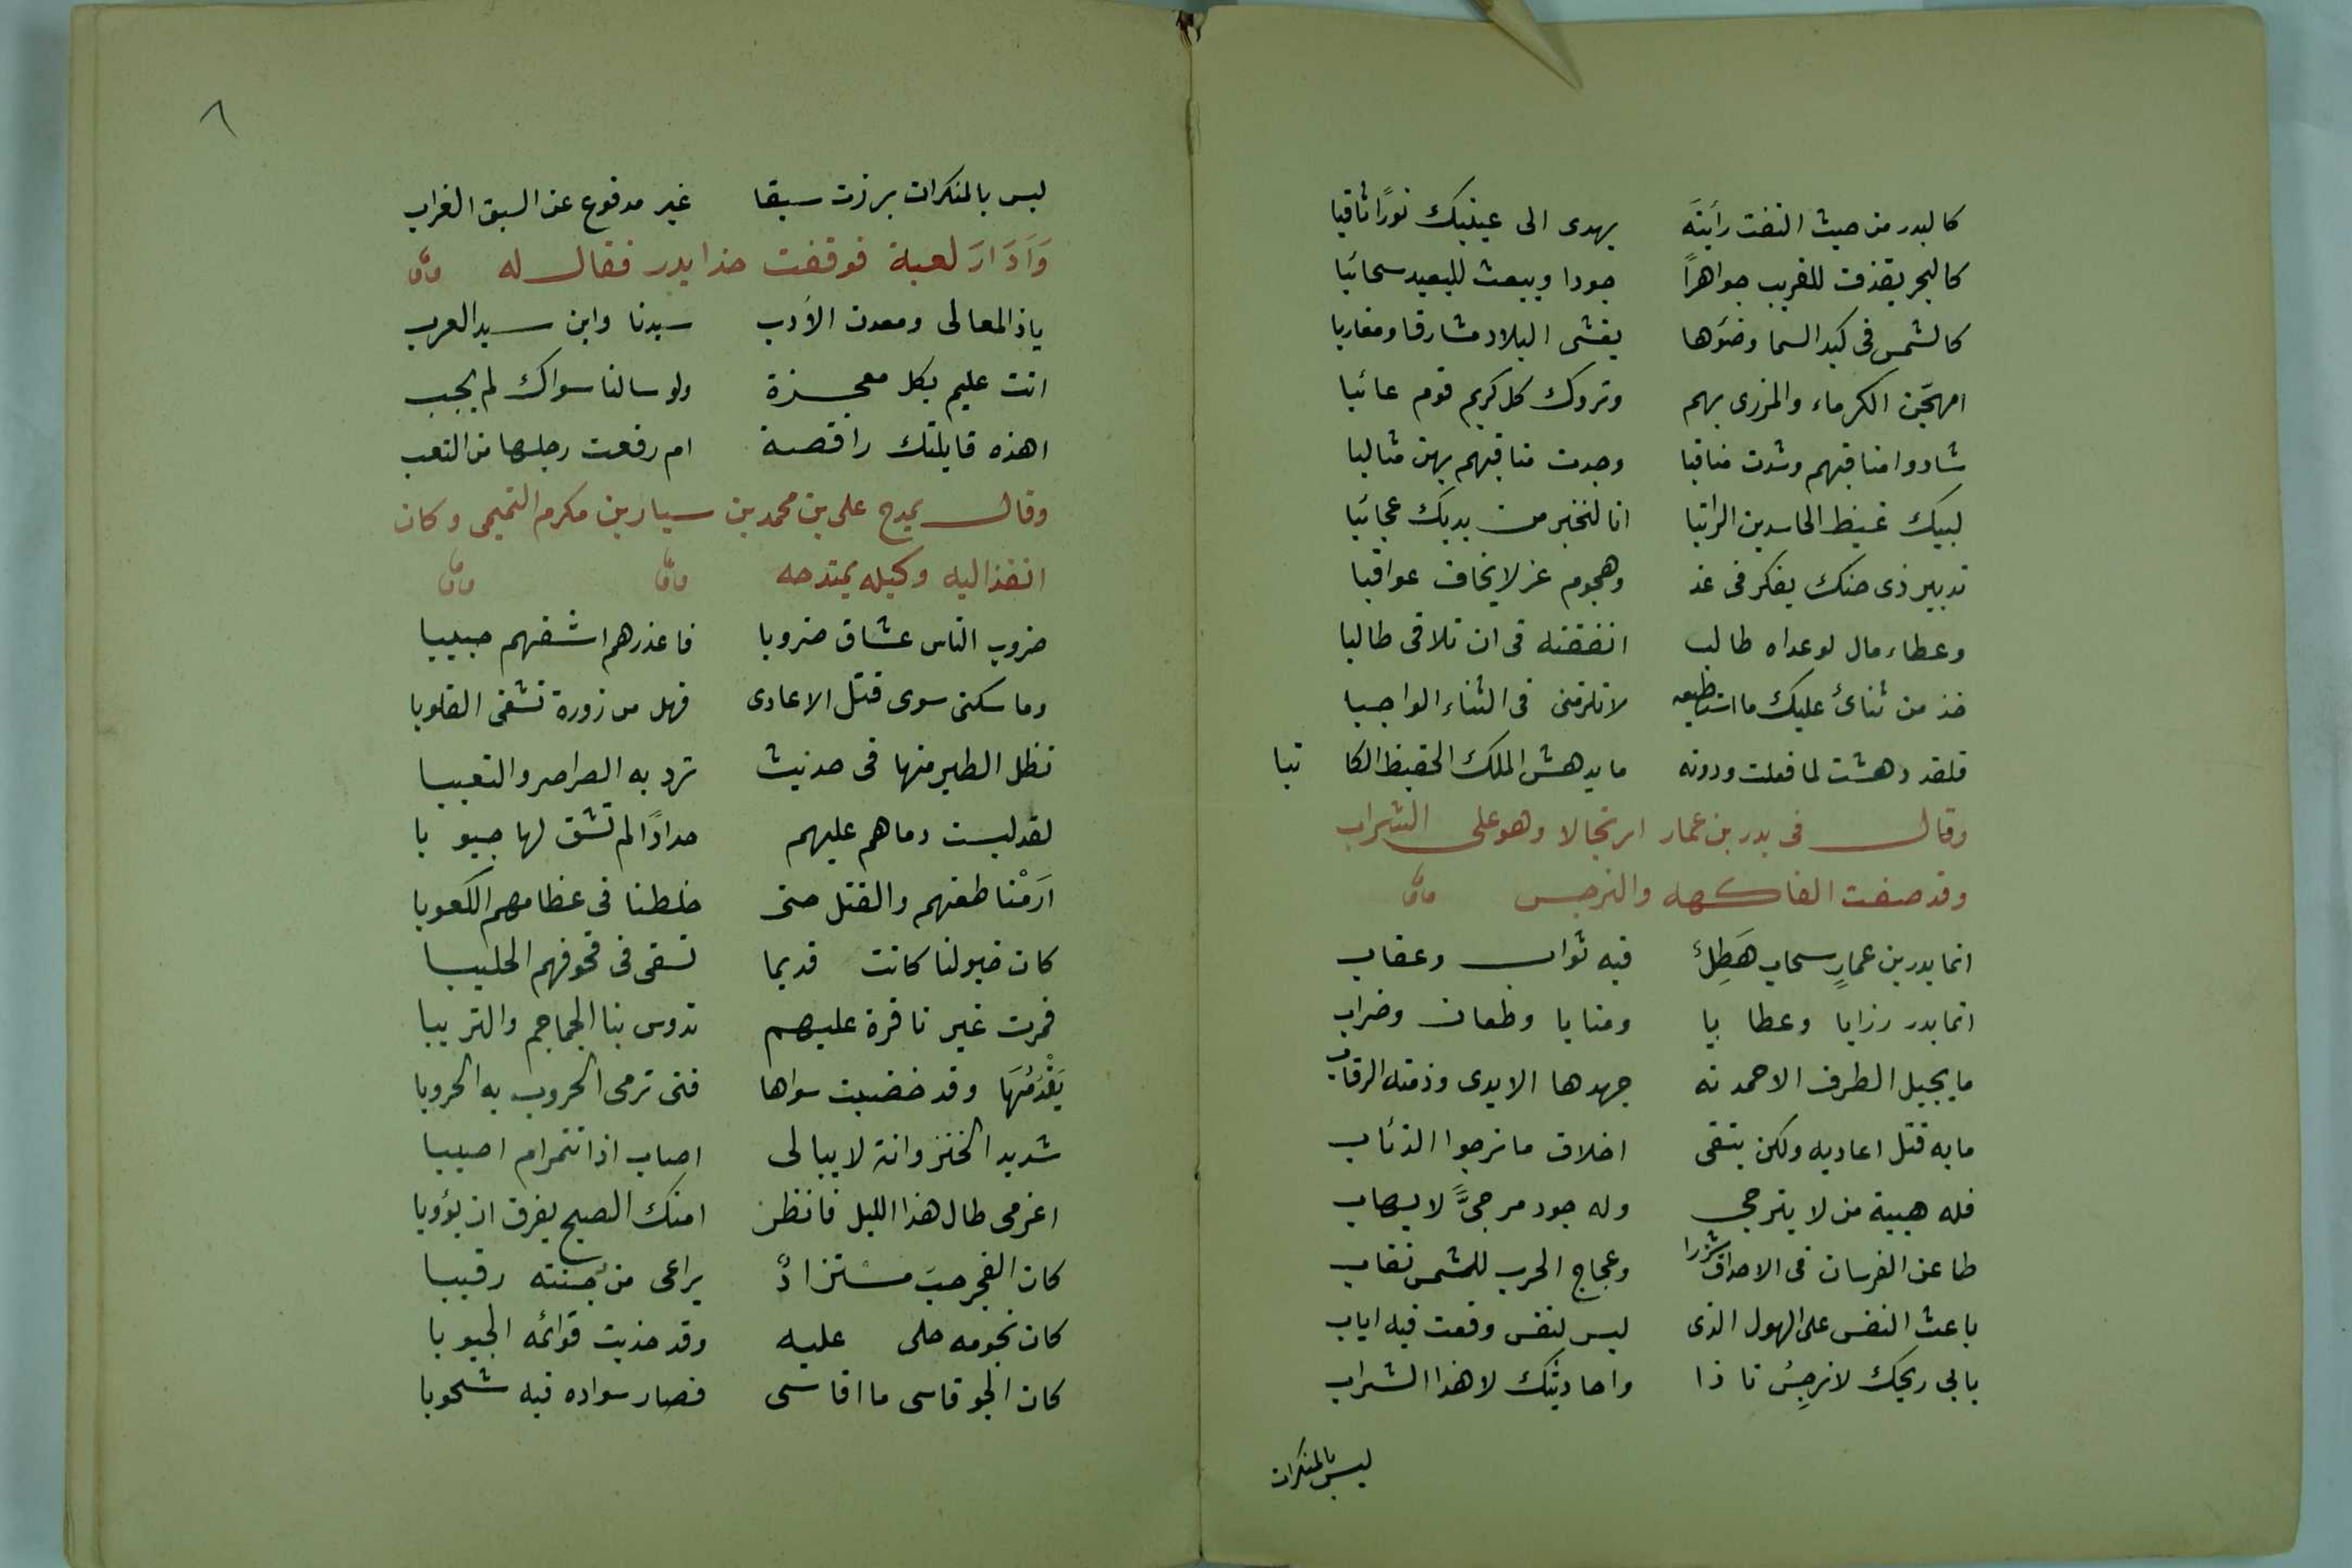 كالبدر من حيث التفت رأيته يهدى الى عينيك نورًا ثاقبا
كالبحر يقذف للقريب جواهرًا جودا ويبعث للبعيد سحائبا
كالشمس فى كبد السما وضوءها يغشى البلاد مشارقا ومغاربا
امهجّن الكرماء والمزرى بهم وتروك كل كريم قوم عائبا
شادوا مناقبهم وشدت مناقبا وجدت مناقبهم بهن مثالبا
لبيك غيظ الحاسدين الراتبا انا لنخبر من يديك عجائبا
تدبير ذى حنك يفكر فى غد وهجوم غر لا يخاف عواقبا
وعطاء مال لو عداه طالب انفقته فى ان تلاقى طالبا
خذ من ثنائ عليك ما اسطيعه لا تلزمنى فى الثناء الواجبا
فلقد دهشت لما فعلت ودونه ما يدهش الملك الحفيظ الكا تبا
وقال فى بدر بن عمار ارتجالا وهو على الشراب
وقد صفت الفاكهه والنرجس
انما بدر بن عمارٍ سحاب هَطِلٌ فيه ثواب وعقاب
انما بدر رزايا وعطا يا ومنايا وطعان وضراب
ما يجيل الطرف الا حمدته جهدها الايدى وذمته الرقاب
ما به قتل اعاديه ولكن يتقى اخلاف ما ترجوا الذئاب
فله هيبة من لا يترجى وله جود مرجىًّ لا يهاب
طاعن الفرسان فى الاحداق شزرا وعجاج الحرب للشمس نقاب
باعث النفس على الهول الذى ليس لنفس وقعت فيه اياب
بابى ريحك لا نرجِسُ نا ذا واحاديثك لا هذا الشراب
ليس بالمنكرات
٦
ليس بالمنكرات برزت سبقا غير مدفوع عن السبق العراب
وَاَدَارَ لعبة فوقفت حذا بدر فقال له
ياذ المعالى ومعدن الأدب سيدنا وابن سيد العرب
انت عليم بكل معجزة ولو سالنا سواك لم يجب
اهذه قابلتك راقصة ام رفعت رجلها من التعب
وقال يمدح على بن محمد بن سيار بن مكرم التميمى وكان
انفذ اليه وكيله يمتدحه
ضروب الناس عشاق ضروبا فاعذرهم اشفهم حبيبا
وما سكنى سوى قتل الاعادى فهل من زورة تشفى القلوبا
تظل الطير منها فى حديث ترد به الصراصر والنعيبا
لقد لبست دماهم عليهم حدادًا لم تشق لها جيو با
اَرَمْنا طعنهم والقتل حتى خلطنا فى عظامهم الكعوبا
كان خيولنا كانت قديما تسقى فى قحوفهم الحليبا
فمرت غير نافرة عليهم تدوس بنا الجماجم والتريبا
يَقْدُمُهَا وقد خضبت سواها فتى ترمى الحروب به الحروبا
شديد الخنزوانة لا يبالى اصاب اذا تنمر ام اصيبا
اعزمى طال هذا الليل فانظر امنك الصبح يفرق ان يؤوبا
كان الفجر حبَ مستزادٌ يراعى من جنته رقيبا
كان نجومه حلى عليه وقد حذيت قوائمه الجيوبا
كان الجو قاسى ما اقاسى فصار سواده فيه شحوبا